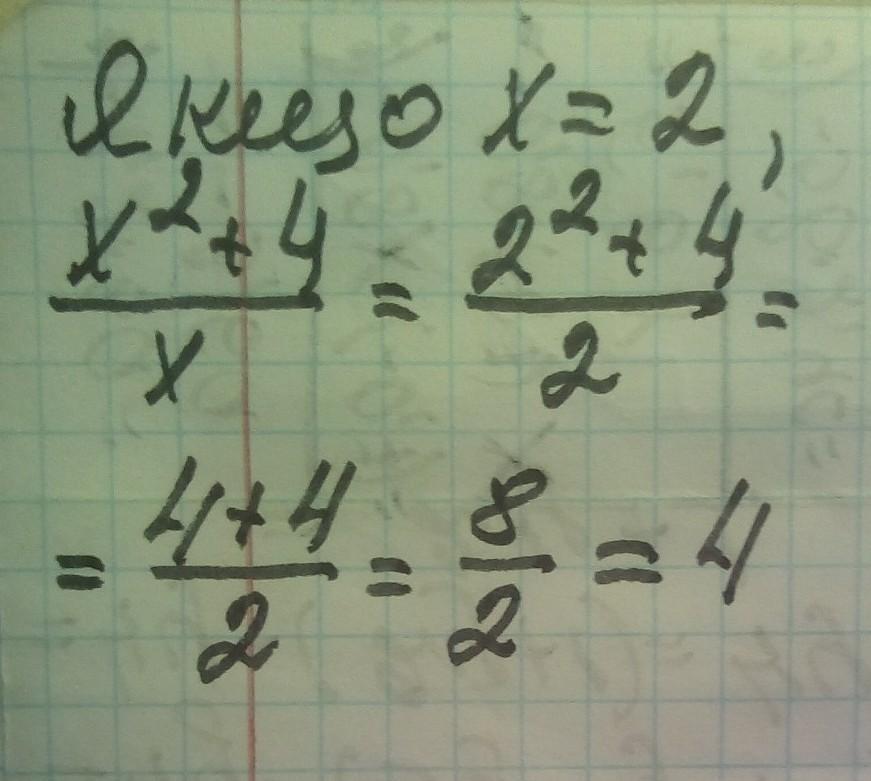 Якщо x = 2,
(x² + 4)/x = (2² + 4)/2 =
= (4 + 4)/2 = 8/2 = 4